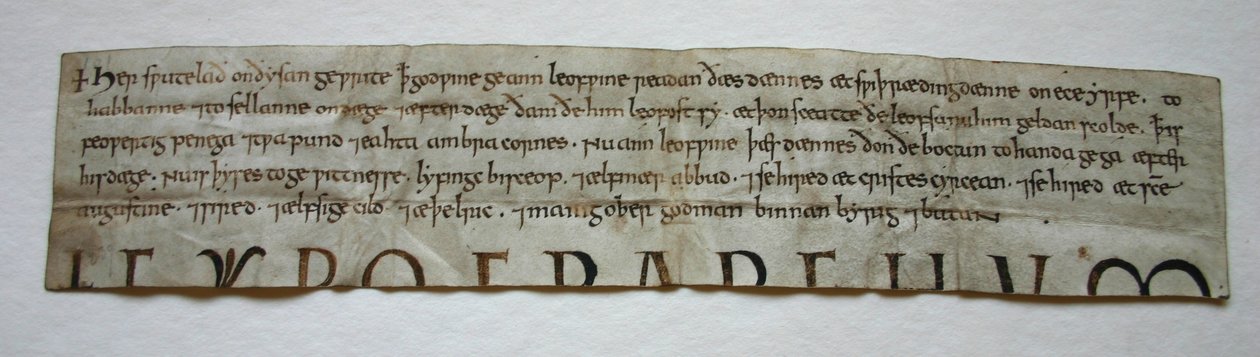 + Her sƿutelað on ðysan geƿrite ꝥ godƿine geann leofƿine readan ðæs dænnes æt sƿiþrædingdænne on ece yrfe. to
habbanne ⁊ to sellanne on dæge ⁊ æfter dæge ðam ðe him leofost sy. æt þon sceatte ðe leofsunu him geldan scolde. ꝥ is
feoƿertig penega ⁊ tƿa pund ⁊ eahta ambra cornes. Nu ann leofƿine þæs dænnes ðon ðe boctun to handa gega æfter
his dæge. Nu is þyses to geƿittnesse. lyfingc bisceop. ⁊ ælfmær abbud. ⁊ se hired æt cristes cyrcean. ⁊ se hired æt sc̄e
augustine. ⁊ sired. ⁊ ælfsige cild ⁊ æþelric. ⁊ manig oþer god man binnan byrig ⁊ butan
+ CYROGRAPHVM